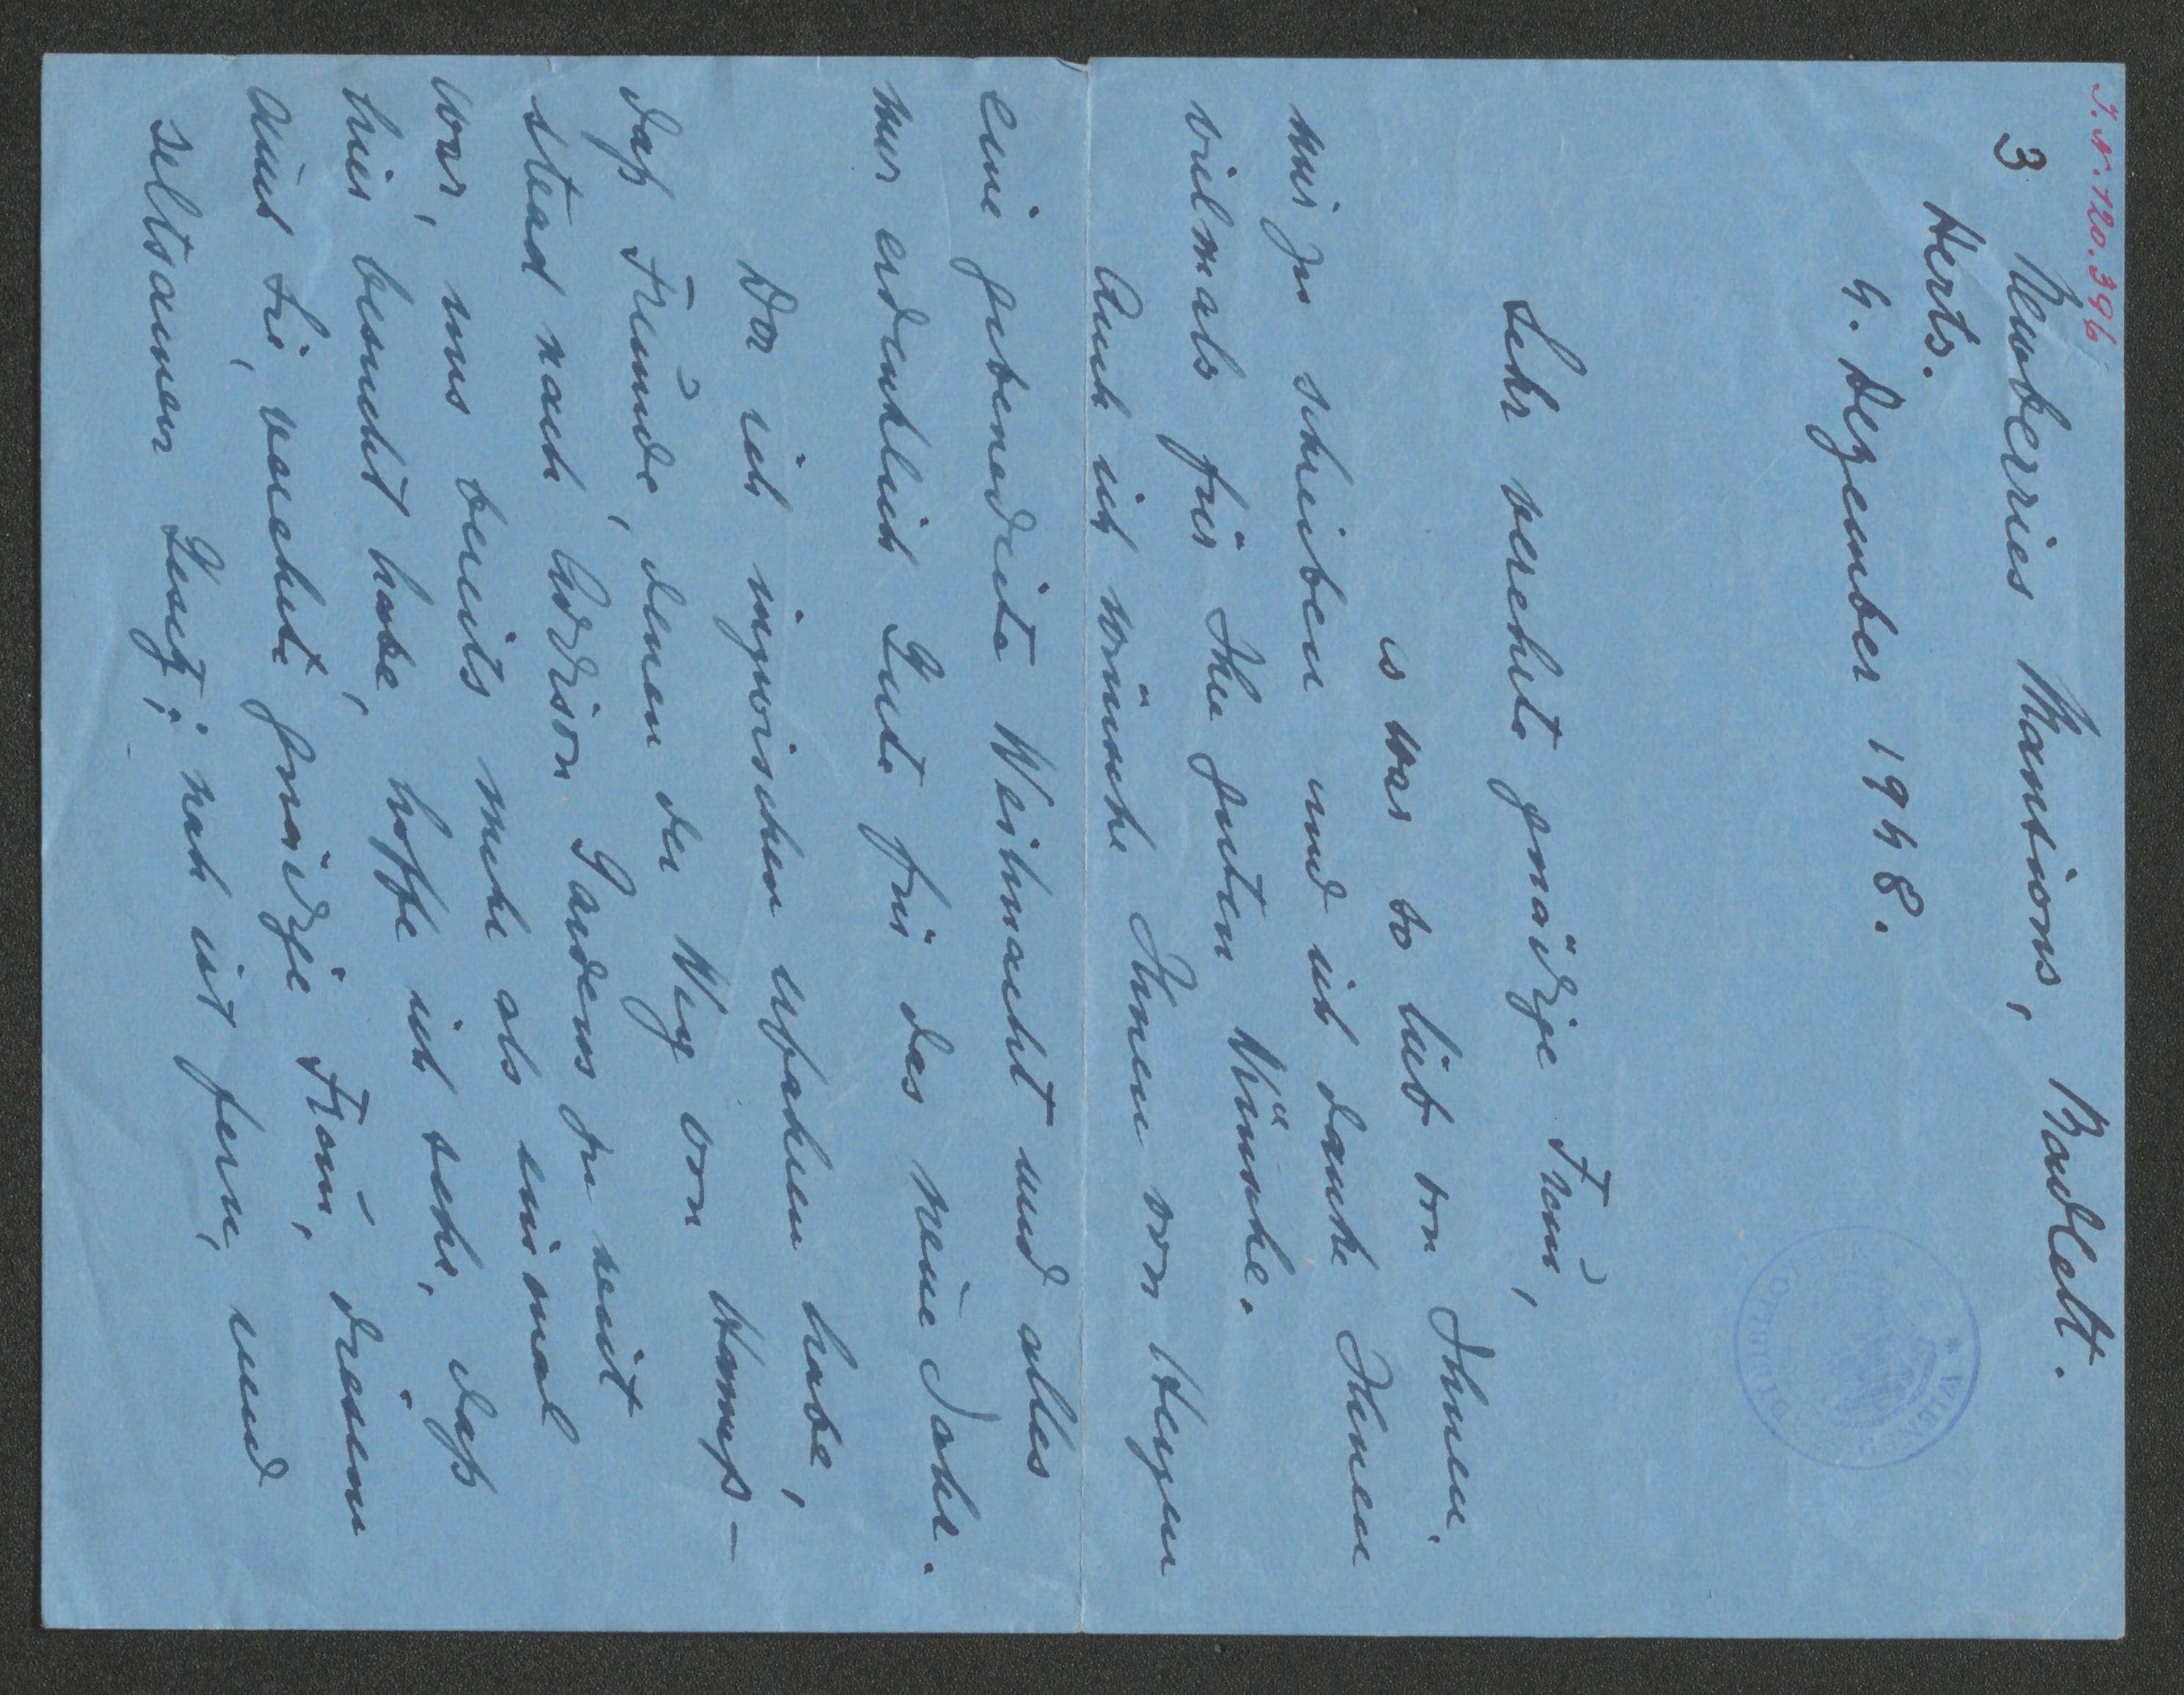 I.N. 120.396
3 Newberries Mansions, Radlett.
Herts.
4. Dezember 1948.
WIENER STADTBIBLIOTHEK
Sehr verehrte gnädige Frau,
es war so lieb von Ihnen,
mir zu schreiben und ich danke Ihnen
vielmals für Ihre guten Wünsche.
Auch ich wünsche Ihnen von Herzen
eine gebenedeite Weihnacht und alles
nur erdenklich Gute für das neue Jahr.
Da ich inzwischen erfahren habe,
daß Freunde, denen der Weg von Hamp-
stead nach Addison Gardens zu weit
war, uns bereits mehr als einmal
hier besucht habe, hoffe ich sehr, daß
auch Sie, verehrte gnädige Frau, diesem
seltsamen Gesetz: nah ist fern, und